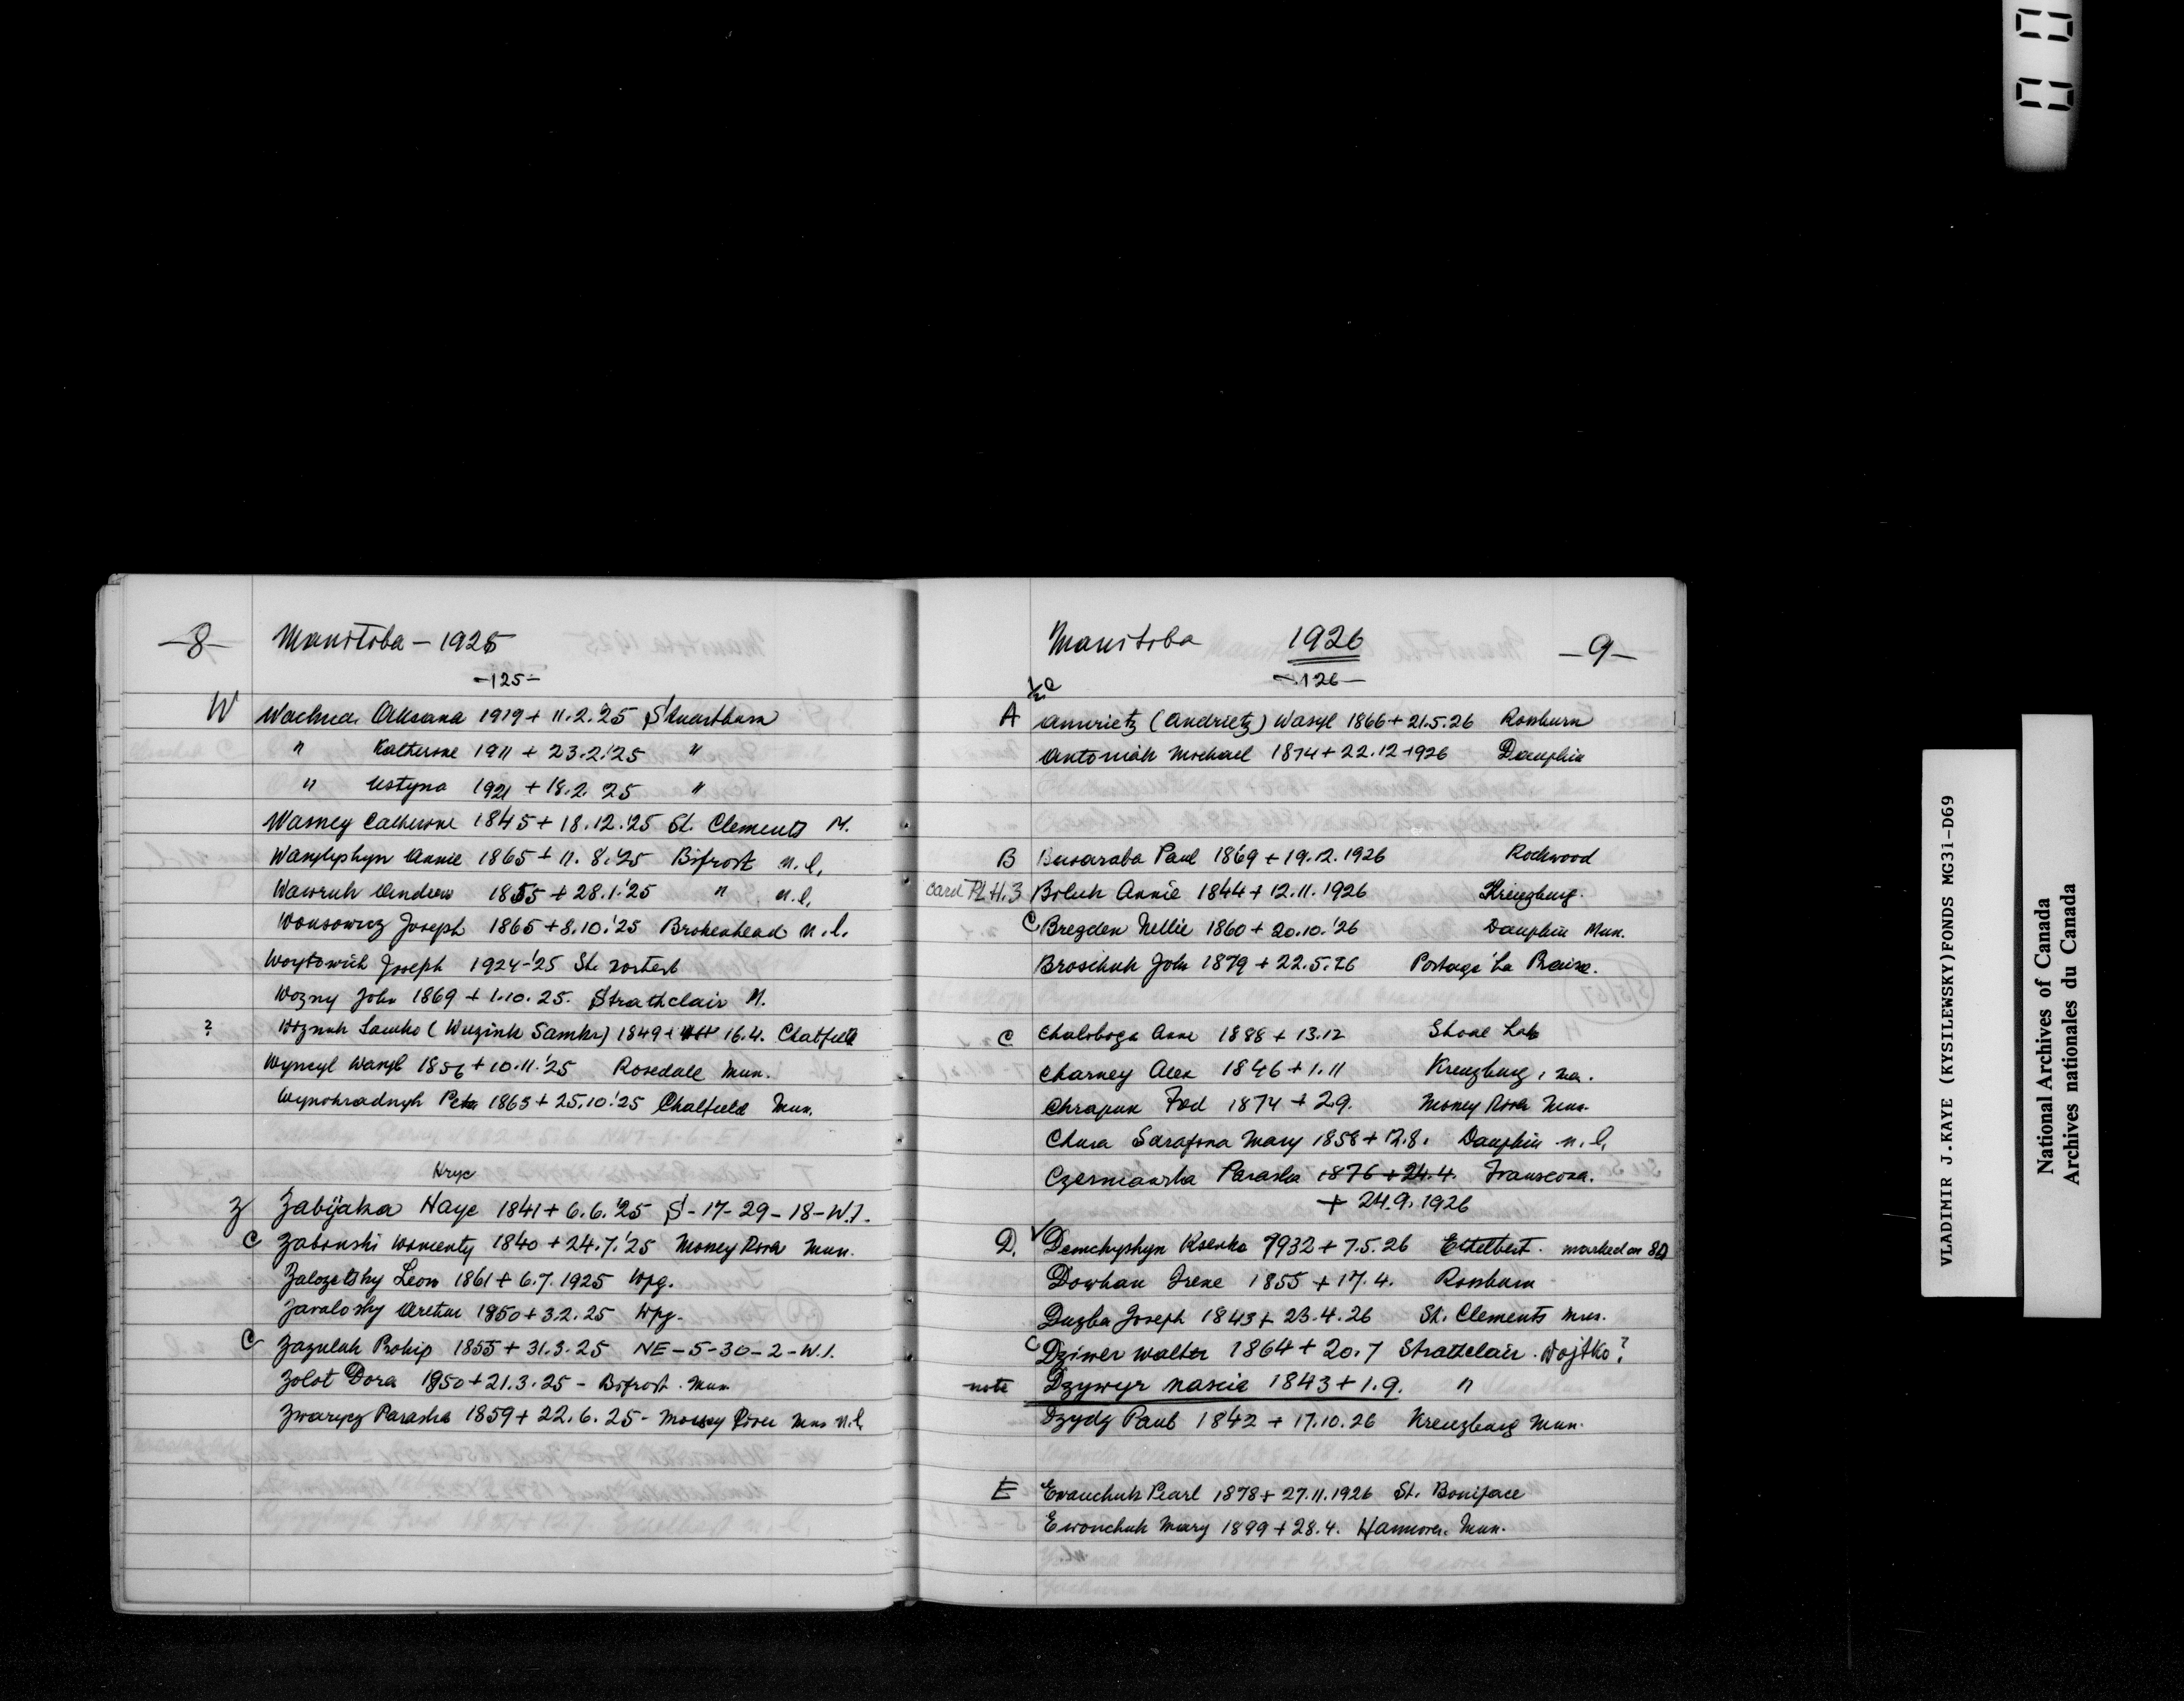 -8- Manitoba - 1925
-125-
W Wachna Oksana 1919 + 11.2.'25 Stuartburn
" Katherine 1911 + 23.2.'25 "
" Ustyna 1921 + 18.2.'25 "
Wasney Catherine 1845 + 18.12.'25 St. Clements M.
Wasylyshyn Annie 1865 + 11.8.'25 Bifrost n.l.
Wawruk Andrew 1855 + 28.1.'25 " n.l.
Wonsowicz Joseph 1865 + 8.10.'25 Brokenhead n.l.
Woytowich Joseph 1924-'25 St. Norbert
Wozny John 1869 + 1.10.25. Strathclair M.
? Woznuk Samko (Wuzink Samko) 1849 + 16.4. Chatfield
Wyncyl Wasyl 1856 + 10.11.'25 Rosedale Mun.
Wynohradnyk Peter 1863 + 25.10.'25 Chatfield Mun.
Hryc
Z Zabijaka Hayc 1841 + 6.6.'25 S-17-29-18-W.1.
C Zabonski Womenty 1840 + 24.7.'25 Mossey River Mun.
Zalozetsky Leon 1861 + 6.7.1925 Wpg.
Zavalosky Arthur 1850 + 3.2.25 Wpg.
C Zazulak Prokip 1855 + 31.3.25 NE-5-30-2-W.1.
Zolot Dora 1850 + 21.3.25 - Bifrost. Mun
Zwarycz Paraska 1859 + 22.6.25 - Mossey River Mun n.l.
Manitoba 1926 -9-
-126-
A Amrietz (Andrietz) Wasyl 1866 + 21.5.26 Rossburn
Antoniak Michael 1874 + 22.12 1926 Dauphin
B Basaraba Paul 1869 + 19.12.1926 Rockwood
card Pl.H.3 Biluk Annie 1844 + 12.11.1926 Kreuzburg.
C Brezden Nellie 1860 + 20.10.'26 Dauphin Mun.
Brosihuk John 1879 + 22.5.26 Portage La Prairie.
C Chaloboga Anne 1888 + 13.12 Shoal Lake
Charney Alex 1846 + 1.11 Kreuzburg, Ma.
Chrapun Fed 1874 + 29. Mossey River Mun.
Chusa Sarafina Mary 1858 + 12.8. Dauphin n.l.
Czerniawska Paraska 1876 + 24.4. Transcona.
+ 24.9.1926
D. Demchyshyn Ksenka 9932 + 7.5.26 Ethelbert. marked on 80
Dowhan Irene 1855 + 17.4. Rossburn
Duzba Joseph 1843 + 23.4.26 St. Clements Mun.
C Dziwer Walter 1864 + 20.7 Strathclair. Wojtko?
note Dzywyr Nascia 1843 + 1.9. "
Dzydz Paul 1842 + 17.10.26 Kreuzburg Mun.
E Evanchuk Pearl 1878 + 27.11.1926 St. Boniface
Ewonchuk Mary 1899 + 28.4. Hannover. Mun.
VLADIMIR J.KAYE (KYSILEWSKY)FONDS MG31-D69
National Archives of Canada
Archives nationales du Canada